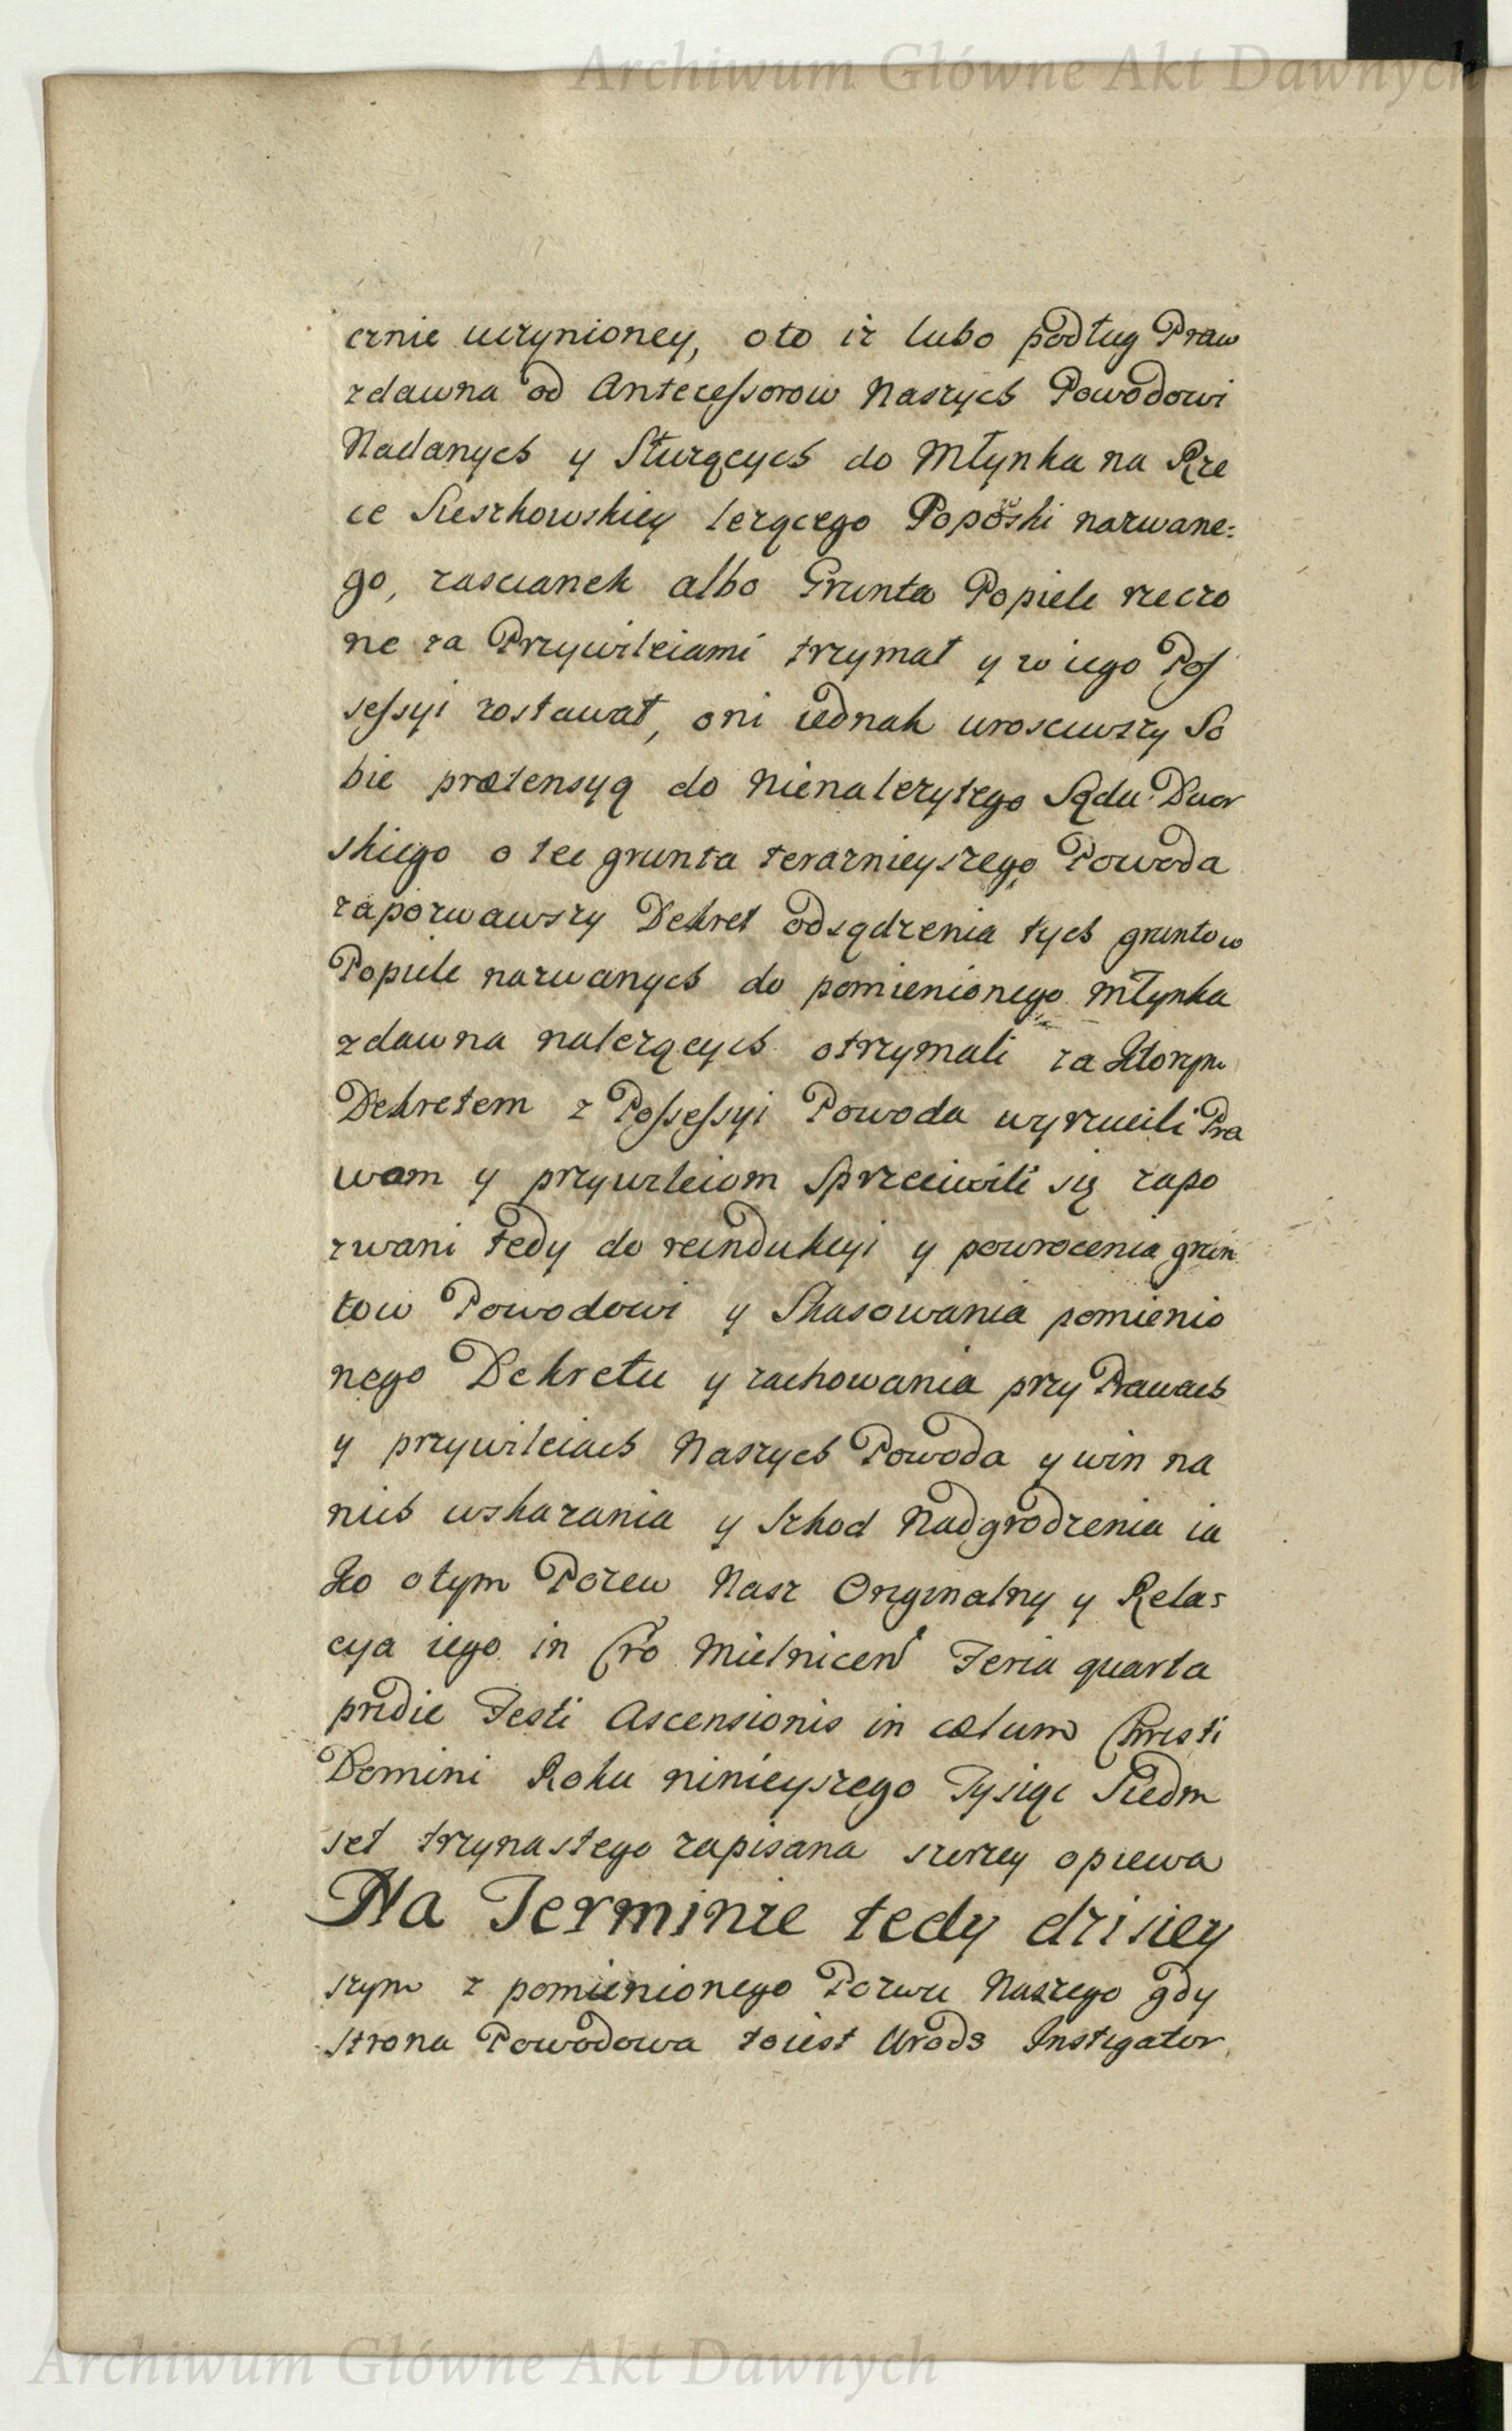 Archiwum Główne Akt Dawnych
cznie uczynioney, oto iz lubo podług Praw
zdawna od Antecessorow Naszych Powodowi
Nadanych y Służących do Młynka na Rze
ce Sieszkowskiey lezącego Popowski nazwane:
go, zascianek albo Grunta Popiele rzeczo
ne za Przywileiami trzymał y w iego Pos
sessyi zostawał, oni iednak urosciwszy So
bie prætensyą do Nienalezytego Sądu Dwor
skiego o tee grunta teraznieyszego Powoda
zapozwawszy Dekret odsądzenia tych gruntow
Popiele nazwanych do pomienionego Młynka
zdawna nalezących otrzymali za Ktorym
Dekretem z Possessyi Powoda wyrzucili Pra
wom y przywileiom Sprzeciwili się zapo
zwani tedy do reindukcyi y powrocenia grun
tow Powodowi y Skasowania pomienio
nego Dekretu y zachowania przy Prawach
y przywileiach Naszych Powoda y win na
nich wskazania y Szkod Nadgrodzenia ia
ko otym Pozew Nasz Oryginalny y Rela:
cya iego in Cro Mielnicen Feria quarta
pridie Festi Ascensionis in cœlum Christi
Domini Roku ninieyszego Tysiąc Siedm
set trzynastego zapisana szerzey opiewa
Na Terminie tedy dzisiey
szym z pomienionego Pozwu Naszego gdy
strona Powodowa toiest Urodz Instigator
Archiwum Główne Akt Dawnych